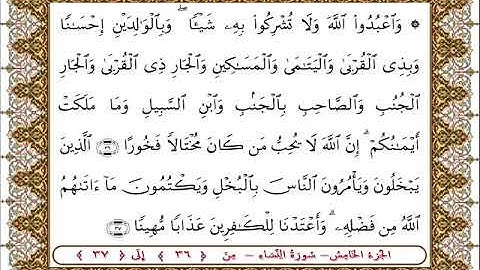 ۞ وَٱعۡبُدُواْ ٱللَّهَ وَلَا تُشۡرِكُواْ بِهِۦ شَيۡـٔٗاۖ وَبِٱلۡوَٰلِدَيۡنِ إِحۡسَٰنٗا
وَبِذِي ٱلۡقُرۡبَىٰ وَٱلۡيَتَٰمَىٰ وَٱلۡمَسَٰكِينِ وَٱلۡجَارِ ذِي ٱلۡقُرۡبَىٰ وَٱلۡجَارِ
ٱلۡجُنُبِ وَٱلصَّاحِبِ بِٱلۡجَنۢبِ وَٱبۡنِ ٱلسَّبِيلِ وَمَا مَلَكَتۡ
أَيۡمَٰنُكُمۡۗ إِنَّ ٱللَّهَ لَا يُحِبُّ مَن كَانَ مُخۡتَالٗا فَخُورًا ٣٦ ٱلَّذِينَ
يَبۡخَلُونَ وَيَأۡمُرُونَ ٱلنَّاسَ بِٱلۡبُخۡلِ وَيَكۡتُمُونَ مَآ ءَاتَىٰهُمُ
ٱللَّهُ مِن فَضۡلِهِۦۗ وَأَعۡتَدۡنَا لِلۡكَٰفِرِينَ عَذَابٗا مُّهِينٗا ٣٧
الجزء الخامس - سورة النساء - من ﴿ ٣٦ ﴾ إلى ﴿ ٣٧ ﴾